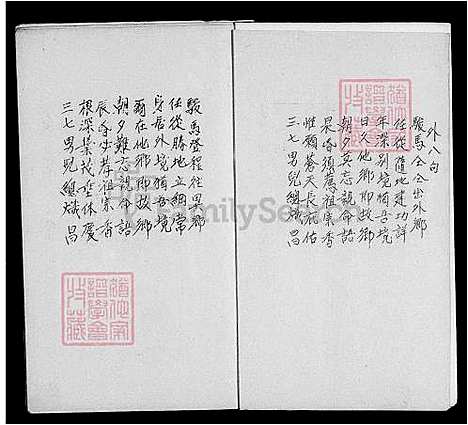 外八句
駿馬金金出外鄉
任從隨地建功詳
年深別境猶吾境
日久他鄉即故鄉
朝夕莫忘親命語
晨昏須薦祖宗香
惟願蒼天長祐佑
三七男兒總熾昌
駿馬登程往異鄉
任從勝地立綱常
身居外境猶吾境
爾在他鄉即故鄉
朝夕難忘親命語
辰昏步奉祖宗香
根深葉茂垂休慶
三七男兒總熾昌
FamilySearch
譜學會
藏